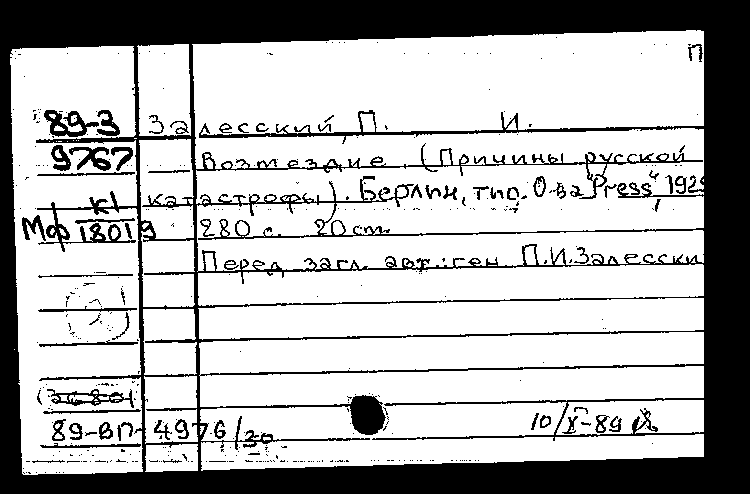 П
89-3 Залесский, П. И.
9767 Возмездие. (Причины русской
к1 катастрофы). Берлин, тип. О-ва "Press", 192
Мф 18019 280 с. 20 см.
Перед загл. авт.: ген П.И.Залесски
2
89-ВП-4976/30
10/X-89